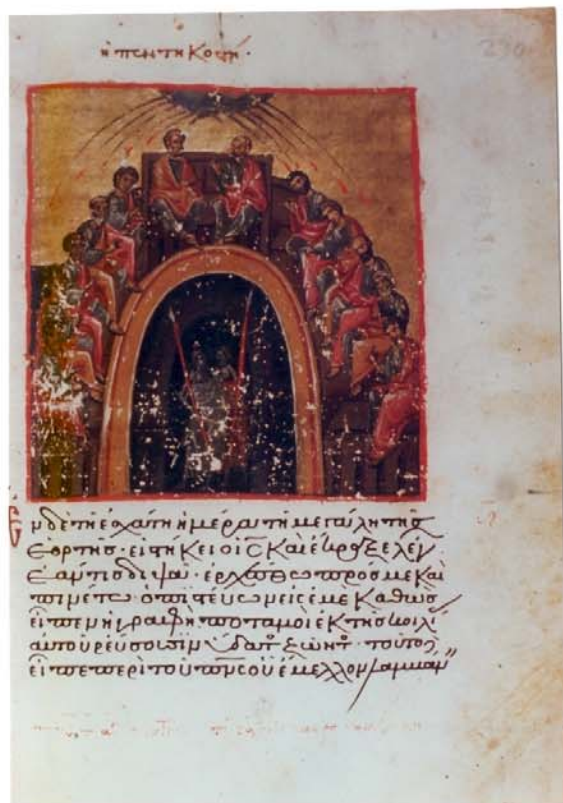 ἡ πεντηκοστή·
Ἐν δὲ τῇ ἐσχάτῃ ἡμέρα τῇ μεγάλῃ τῆς
ἑορτῆς· εἱστήκει ὁ ις καὶ ἔκραξε λέγων
ἐάν τις διψᾷ· ἐρχέσθω πρός με καὶ
πινέτω· ὁ πιστεύων εἰς ἐμὲ καθὼς
εἶπεν ἡ γραφὴ ποταμοὶ ἐκ τῆς κοιλί
αὐτοῦ ῥεύσουσιν ὕδατ ζῶντ· τοῦτο
εἶπε περὶ τοῦ πνσ οὗ ἔμελλον λαμβαν